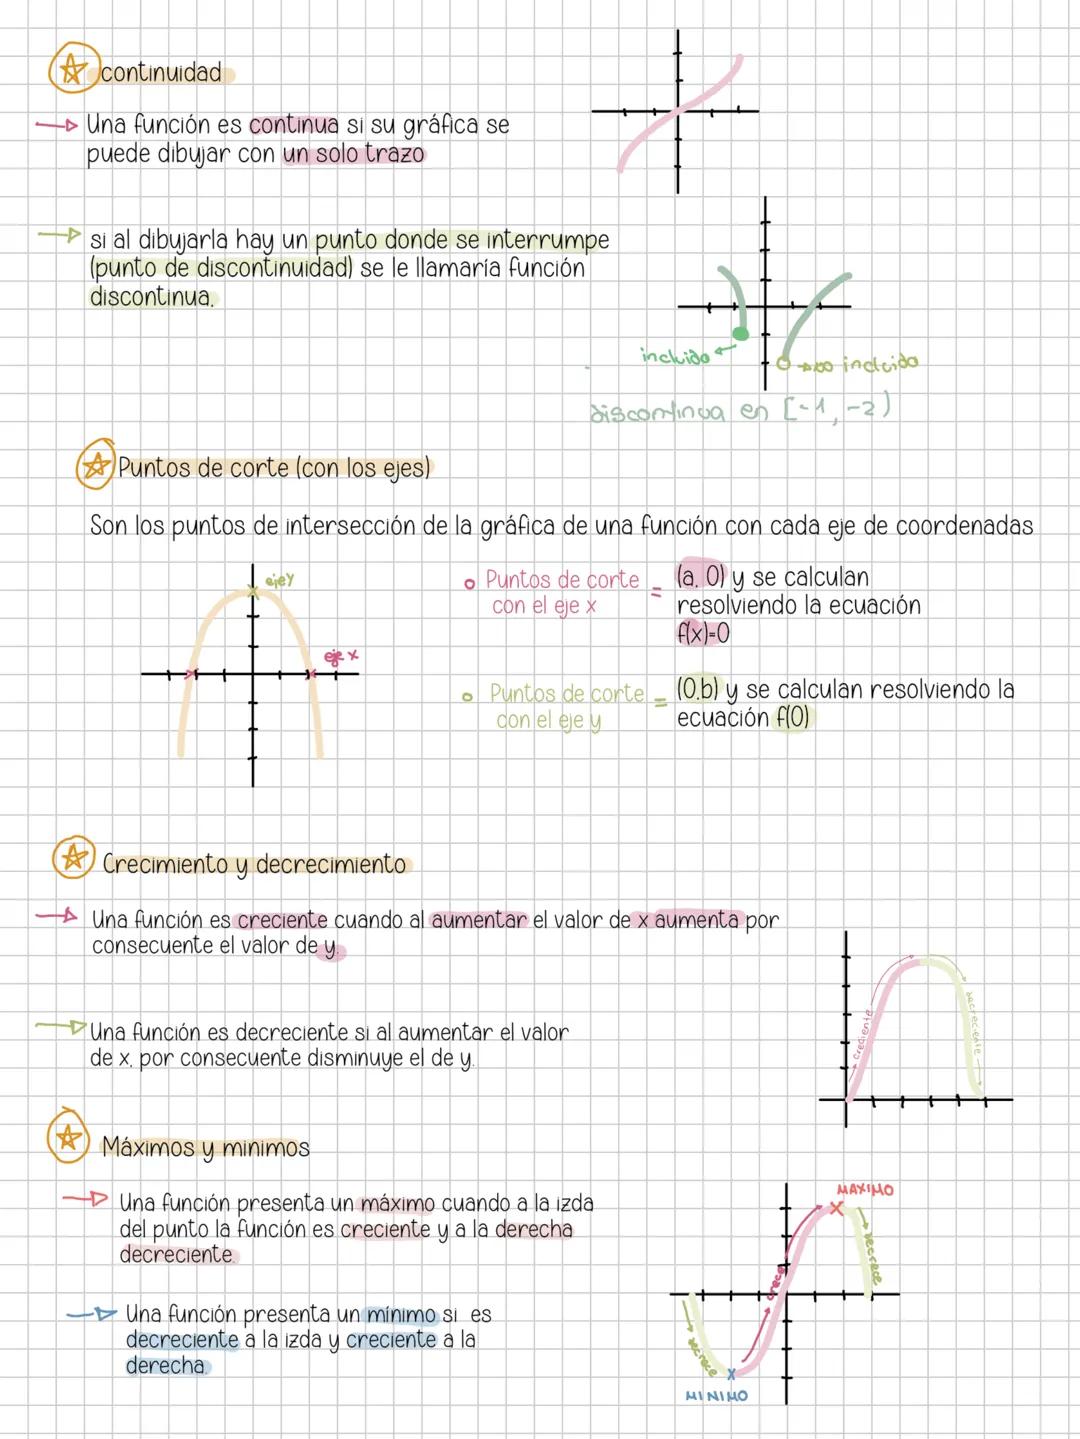 continuidad
Una función es continua si su gráfica se
puede dibujar con un solo trazo
si al dibujarla hay un punto donde se interrumpe
(punto de discontinuidad) se le llamaría función
discontinua.
incluido
no incluido
discontinua en [-1, -2)
Puntos de corte (con los ejes)
Son los puntos de intersección de la gráfica de una función con cada eje de coordenadas
eje y
eje x
Puntos de corte
con el eje x
=
(a, 0) y se calculan
resolviendo la ecuación
f(x)=0
Puntos de corte
con el eje y
=
(0,b) y se calculan resolviendo la
ecuación f(0)
Crecimiento y decrecimiento
Una función es creciente cuando al aumentar el valor de x aumenta por
consecuente el valor de y.
creciente
decreciente
Una función es decreciente si al aumentar el valor
de x, por consecuente disminuye el de y.
Máximos y minimos
Una función presenta un máximo cuando a la izda
del punto la función es creciente y a la derecha
decreciente.
MAXIMO
decrece
crece
decrece
MINIMO
Una función presenta un mínimo si es
decreciente a la izda y creciente a la
derecha.